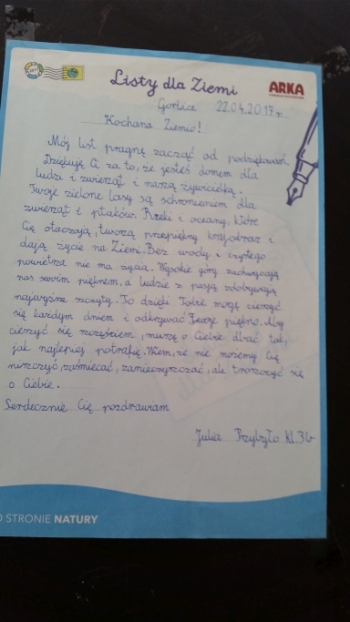 Listy dla Ziemi
ARKA
Gorlice 22.04.2017r.
Kochana Ziemio!
Mój list pragnę zacząć od podziękowań.
Dziękuję Ci za to, że jesteś domem dla
ludzi i zwierząt i naszą żywicielką.
Twoje zielone lasy są schronieniem dla
zwierząt i ptaków. Rzeki i oceany, które
Cię otaczają, tworzą przepiękny krajobraz i
dają życie na Ziemi. Bez wody i czystego
powietrza nie ma życia. Wysokie góry zachwycają
nas swoim pięknem, a ludzie z pasją zdobywają
najwyższe szczyty. To dzięki Tobie mogę cieszyć
się każdym dniem i odkrywać Twoje piękno. Aby
cieszyć się szczęściem, muszę o Ciebie dbać tak,
jak najlepiej potrafię. Wiem, że nie możemy Cię
niszczyć, zaśmiecać, zanieczyszczać, ale troszczyć się
o Ciebie.
Serdecznie Cię pozdrawiam
Julia Przybyło kl. 3b
O STRONIE NATURY